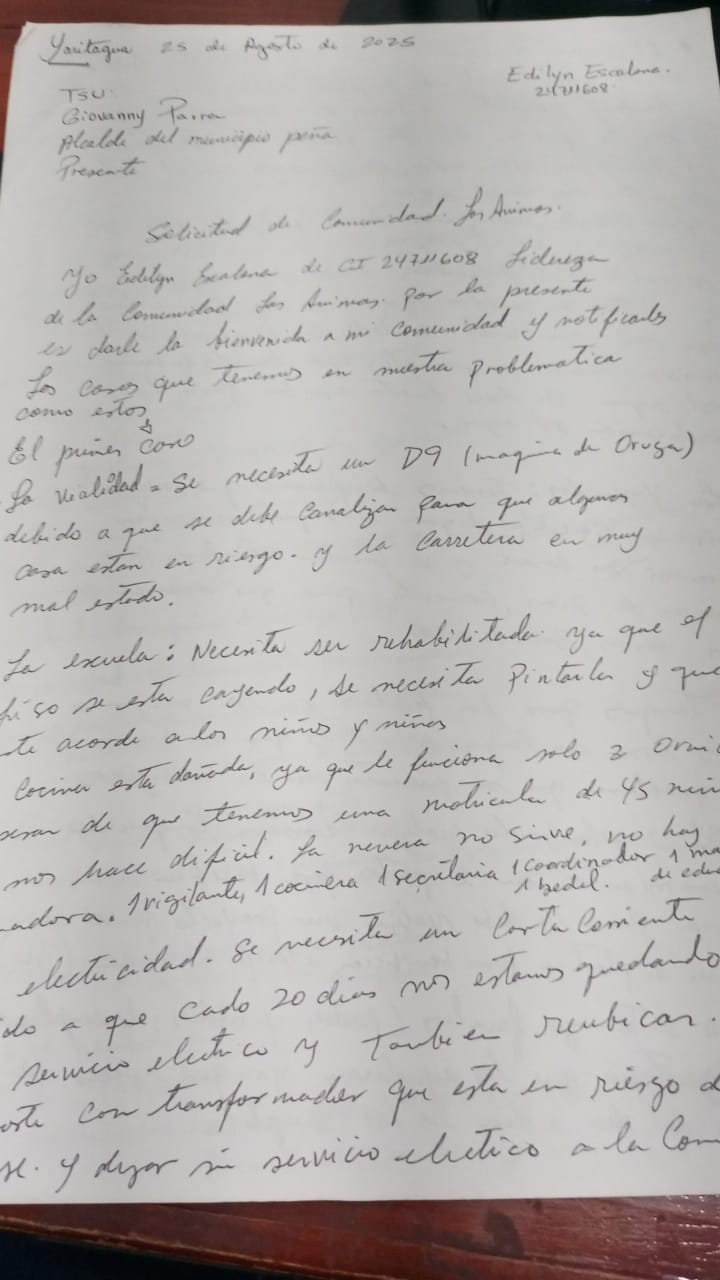 Yaritagua 25 de Agosto de 2025
Edilyn Escalona.
24711608
TSU:
Giovanny Parra
Alcalde del municipio peña
Presente
Solicitud de Comunidad. Las Animas.
Yo Edilyn Escalona de CI 24711608 Lidereza
de la Comunidad Las Animas. por la presente
es darle la bienvenida a mi comunidad y notificarles
Los casos que tenemos en nuestra problematica
como estos
El primer caso
La Vialidad = Se necesita un D9 (maquina de Oruga)
debido a que se debe Canalizar para que algunas
casa estan en riesgo. y la Carretera en muy
mal estado.
La escuela: Necesita ser rehabilitada ya que el
piso se esta cayendo, se necesita Pintarla y que
te acorde a los niños y niñas
Cocina esta dañada, ya que le funciona solo 2
de que tenemos una matricula de 45
nos hace dificil. La nevera no sirve, no hay
adora. 1 vigilante, 1 cocinera 1 secretaria 1 coordinador 1 ma
1 bedel. de edu
electricidad. Se necesita un Corta Corriente
ido a que cada 20 dias nos estamos quedando
servicio electrico y Tambien reubicar.
oste con transformador que esta en riesgo d
se. y dejar sin servicio electico a la Com